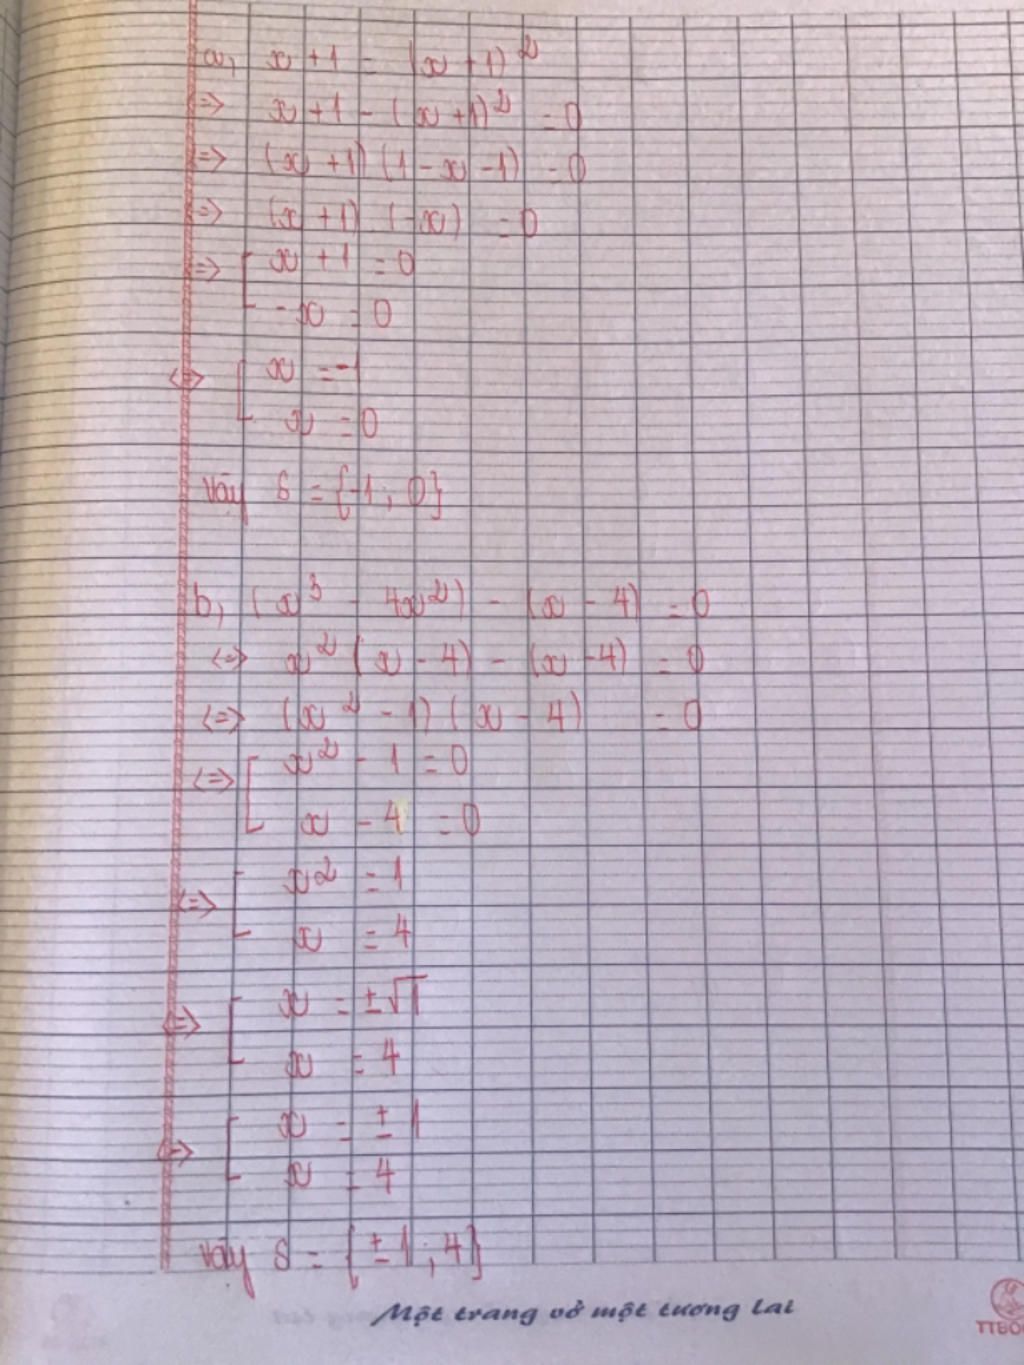 a, x + 1 = (x + 1)²
=> x + 1 - (x + 1)² = 0
=> (x + 1) (1 - x - 1) = 0
=> (x + 1) (-x) = 0
=> [ x + 1 = 0
- x = 0
<=> [ x = -1
x = 0
Vậy S = {-1 ; 0}
b, (x³ - 4x²) - (x - 4) = 0
<=> x² (x - 4) - (x - 4) = 0
<=> (x² - 1) (x - 4) = 0
<=> [ x² - 1 = 0
x - 4 = 0
<=> [ x² = 1
x = 4
<=> [ x = ±√1
x = 4
<=> [ x = ± 1
x = 4
Vậy S = {± 1 ; 4}
Một trang vở một tương lai